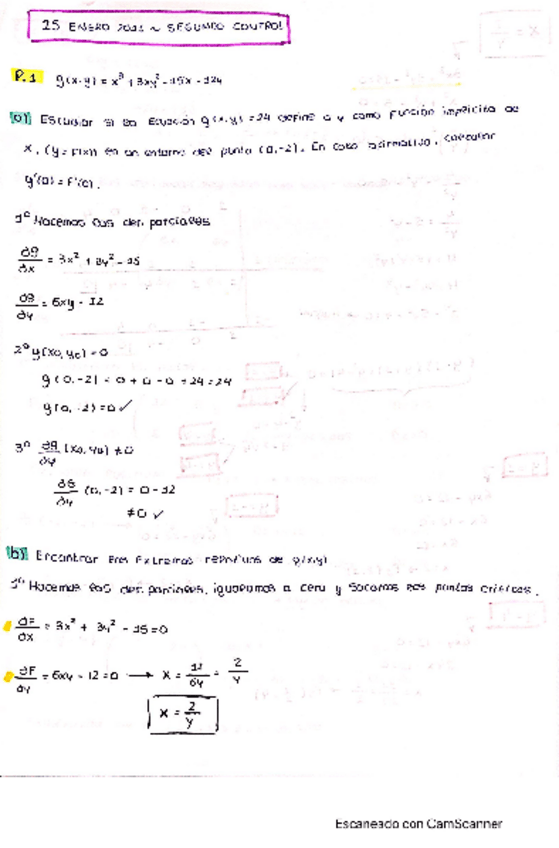 25 ENERO 2022 ~ SEGUNDO CONTROL
P.1 g(x,y) = x³ + 3xy² - 15x - 12y
a) Estudiar si la Ecuación g(x,y) = 24 define a y como función implícita de
x, (y = F(x)) en un entorno del punto (0,-2). En caso afirmativo, calcular
y'(0) = F'(0).
1º Hacemos las der. parciales
∂g/∂x = 3x² + 3y² - 15
∂g/∂y = 6xy - 12
2º g(x0, y0) = 0
g(0,-2) = 0 + 0 - 0 + 24 = 24
g(0,-2) = 0 ✓
3º ∂g/∂y (x0, y0) ≠ 0
∂g/∂y (0,-2) = 0 - 12
≠ 0 ✓
b) Encontrar los Extremos relativos de g(x,y)
1º Hacemos las der. parciales, igualamos a cero y sacamos los puntos críticos.
∂F/∂x = 3x² + 3y² - 15 = 0
∂F/∂y = 6xy - 12 = 0 → x = 12/6y = 2/y
x = 2/y
Escaneado con CamScanner